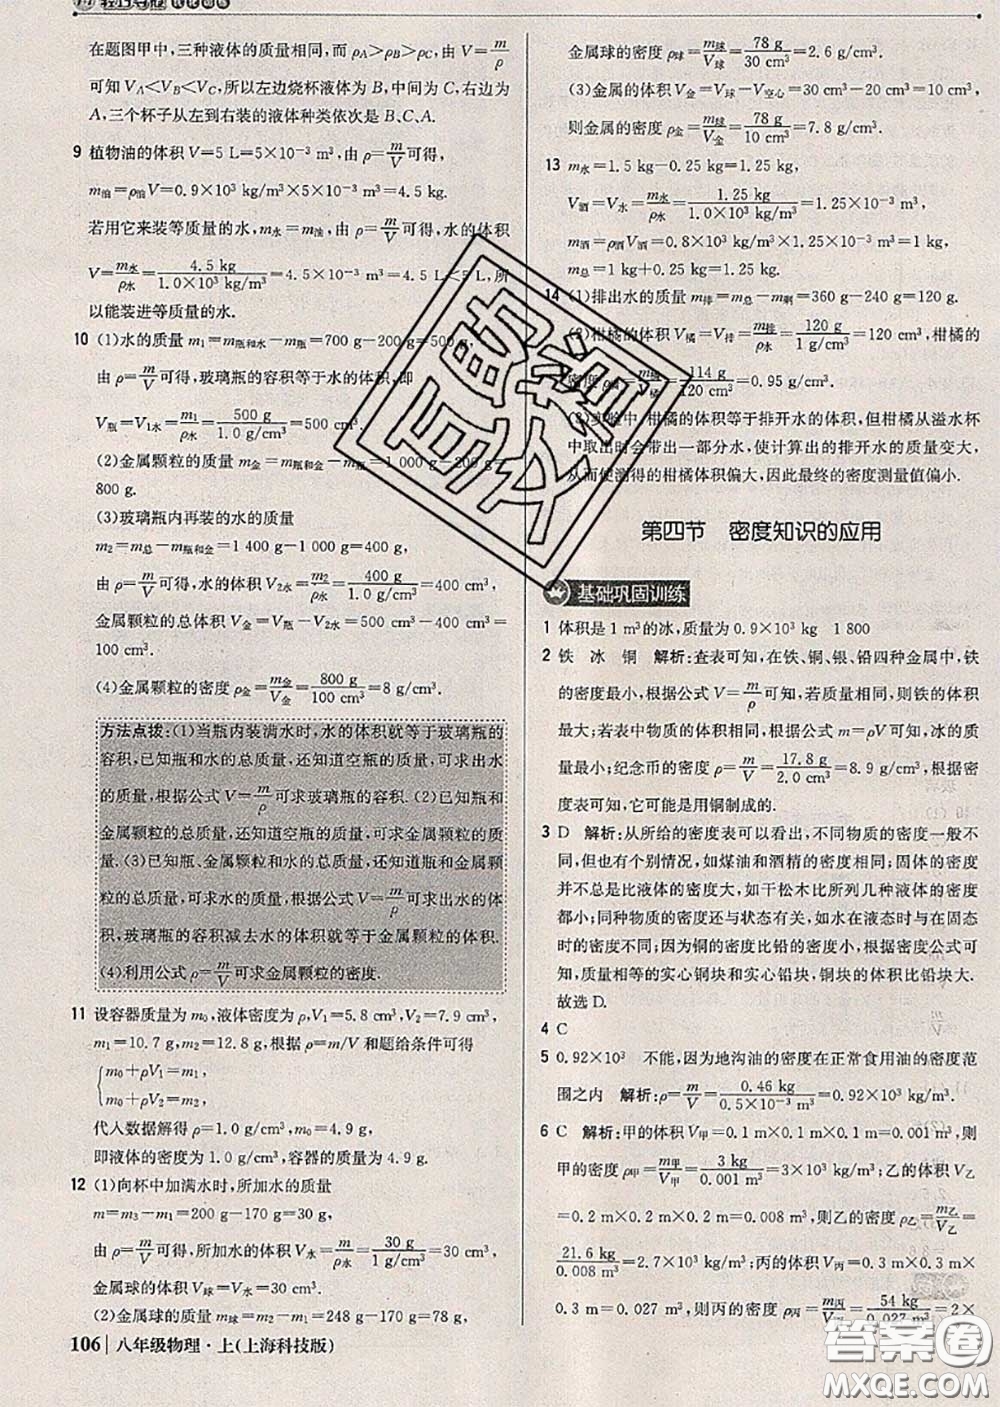 在题图甲中,三种液体的质量相同,而 ρA>ρB>ρC,由 V=m/ρ
可知 VA<VB<VC,所以左边烧杯液体为 B,中间为 C,右边为
A,三个杯子从左到右装的液体种类依次是 B、C、A.
9 植物油的体积 V=5 L=5×10⁻³ m³,由 ρ=m/V 可得,
m油=ρ油V=0.9×10³ kg/m³×5×10⁻³ m³=4.5 kg.
若用它来装等质量的水,m水=m油,由 ρ=m/V 可得,水的体积
V=m水/ρ水=4.5 kg/1.0×10³ kg/m³=4.5×10⁻³ m³=4.5 L<5 L,所
以能装进等质量的水.
10 (1)水的质量 m1=m瓶和水-m瓶=700 g-200 g=500 g,
由 ρ=m/V 可得,玻璃瓶的容积等于水的体积,即
V瓶=V1水=m1/ρ水=500 g/1.0 g/cm³=500 cm³.
(2)金属颗粒的质量 m金=m瓶和金-m瓶=1 000 g-200 g=
800 g.
(3)玻璃瓶内再装的水的质量
m2=m总-m瓶和金=1 400 g-1 000 g=400 g,
由 ρ=m/V 可得,水的体积 V2水=m2/ρ水=400 g/1.0 g/cm³=400 cm³,
金属颗粒的总体积 V金=V瓶-V2水=500 cm³-400 cm³=
100 cm³.
(4)金属颗粒的密度 ρ金=m金/V金=800 g/100 cm³=8 g/cm³.
方法点拨:(1)当瓶内装满水时,水的体积就等于玻璃瓶的
容积,已知瓶和水的总质量,还知道空瓶的质量,可求出水
的质量,根据公式 V=m/ρ可求玻璃瓶的容积. (2)已知瓶和
金属颗粒的总质量,还知道空瓶的质量,可求金属颗粒的质
量. (3)已知瓶、金属颗粒和水的总质量,还知道瓶和金属颗
粒的总质量,可求出水的质量,根据公式 V=m/ρ可求出水的体
积,玻璃瓶的容积减去水的体积就等于金属颗粒的体积.
(4)利用公式 ρ=m/V可求金属颗粒的密度.
11 设容器质量为 m0,液体密度为 ρ,V1=5.8 cm³,V2=7.9 cm³,
m1=10.7 g,m2=12.8 g,根据 ρ=m/V 和题给条件可得
{m0+ρV1=m1,
m0+ρV2=m2,
代入数据解得 ρ=1.0 g/cm³,m0=4.9 g,
即液体的密度为 1.0 g/cm³,容器的质量为 4.9 g.
12 (1)向杯中加满水时,所加水的质量
m=m3-m1=200 g-170 g=30 g,
由 ρ=m/V 可得,所加水的体积 V水=m/ρ水=30 g/1 g/cm³=30 cm³,
金属球的体积 V球=V水=30 cm³.
(2)金属球的质量 m球=m2-m1=248 g-170 g=78 g,
106 八年级物理·上(上海科技版)
金属球的密度 ρ球=m球/V球=78 g/30 cm³=2.6 g/cm³.
(3)金属的体积 V金=V球-V空心=30 cm³-20 cm³=10 cm³,
则金属的密度 ρ金=m球/V金=78 g/10 cm³=7.8 g/cm³.
13 m水=1.5 kg-0.25 kg=1.25 kg,
V酒=V水=m水/ρ水=1.25 kg/1.0×10³ kg/m³=1.25×10⁻³ m³,
m酒=ρ酒V酒=0.8×10³ kg/m³×1.25×10⁻³ m³=1 kg,
m总=1 kg+0.25 kg=1.25 kg.
14 (1)排出水的质量 m排=m总-m剩=360 g-240 g=120 g.
(2)柑橘的体积 V橘=V排=m排/ρ水=120 g/1 g/cm³=120 cm³,柑橘的
密度 ρ橘=m橘/V橘=114 g/120 cm³=0.95 g/cm³.
(3)实验中,柑橘的体积等于排开水的体积,但柑橘从溢水杯
中取出时会带出一部分水,使计算出的排开水的质量变大,
从而使测得的柑橘体积偏大,因此最终的密度测量值偏小.
第四节 密度知识的应用
基础巩固训练
1 体积是 1 m³的冰,质量为 0.9×10³ kg 1 800
2 铁 冰 铜 解析:查表可知,在铁、铜、银、铅四种金属中,铁
的密度最小,根据公式 V=m/ρ可知,若质量相同,则铁的体积
最大;若表中物质的体积相同,根据公式 m=ρV 可知,冰的质
量最小;纪念币的密度 ρ=m/V=17.8 g/2.0 cm³=8.9 g/cm³,根据密
度表可知,它可能是用铜制成的.
3 D 解析:从所给的密度表可以看出,不同物质的密度一般不
同,但也有个别情况,如煤油和酒精的密度相同;固体的密度
并不总是比液体的密度大,如干松木比所列几种液体的密度
都小;同种物质的密度还与状态有关,如水在液态时与在固态
时的密度不同;因为铜的密度比铅的密度小,根据密度公式可
知,质量相等的实心铜块和实心铅块,铜块的体积比铅块大.
故选 D.
4 C
5 0.92×10³ 不能,因为地沟油的密度在正常食用油的密度范
围之内 解析:ρ=m/V=0.46 kg/0.5×10⁻³ m³=0.92×10³ kg/m³.
6 C 解析:甲的体积 V甲=0.1 m×0.1 m×0.1 m=0.001 m³,则
甲的密度 ρ甲=m甲/V甲=3 kg/0.001 m³=3×10³ kg/m³;乙的体积 V乙
=0.2 m×0.2 m×0.2 m=0.008 m³,则乙的密度 ρ乙=m乙/V乙=
21.6 kg/0.008 m³=2.7×10³ kg/m³;丙的体积 V丙=0.3 m×0.3 m×
0.3 m=0.027 m³,则丙的密度 ρ丙=m丙/V丙=54 kg/0.027 m³=2×
答案圈
MXQE.COM